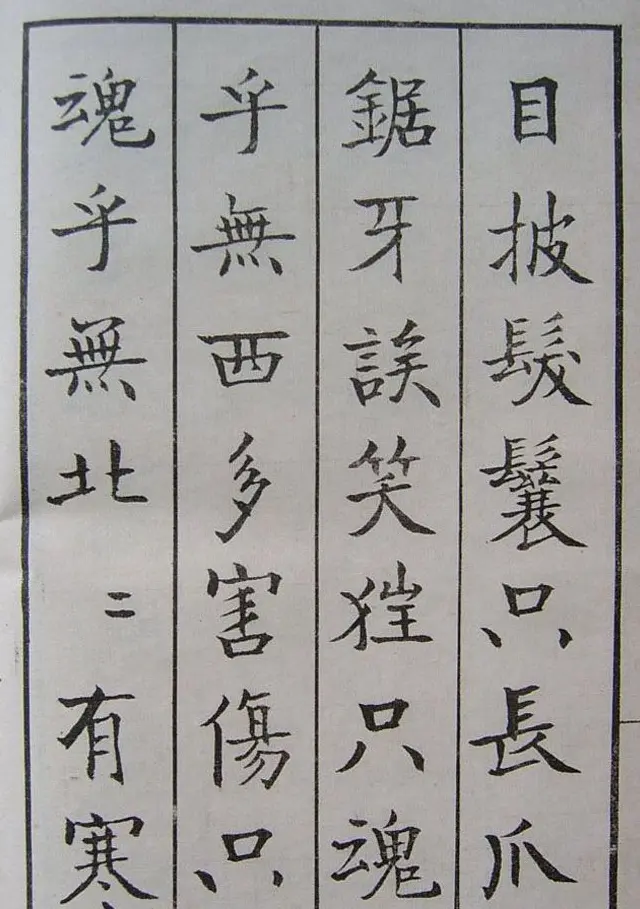 目披髮鬤只長爪
鋸牙誒笑狂只魂
乎無西多害傷只
魂乎無北二有寒